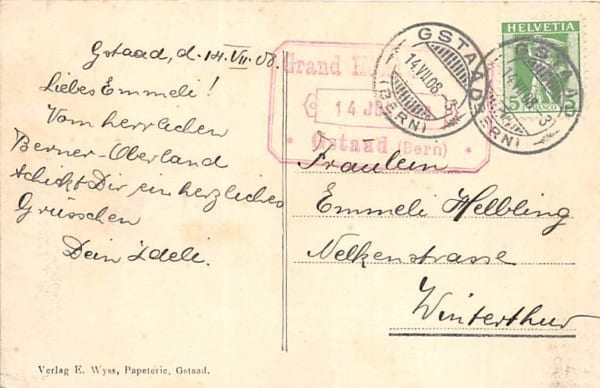 Gstaad, d. 14. VII. 08.
Liebes Emmeli!
Vom herrlichen
Berner-Oberland
schickt Dir ein herzliches
Grüsschen
Dein Ideli.
Verlag E. Wyss, Papeterie, Gstaad.
Grand
14
Gstaad (Bern)
GSTAAD
14.VII.08
(BERN)
HELVETIA
5
GSTAAD
14.VII.08
(BERN)
Fräulein
Emmeli Helbling
Nelkenstrasse
Winterthur